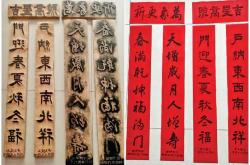 吉星高照
萬象更新
門迎春夏秋冬福
戶納東西南北祥
春滿乾坤福滿門
天增歲月人增壽
萬象更新
吉星高照
春滿乾坤福滿門
天增歲月人增壽
門迎春夏秋冬福
戶納東西南北祥